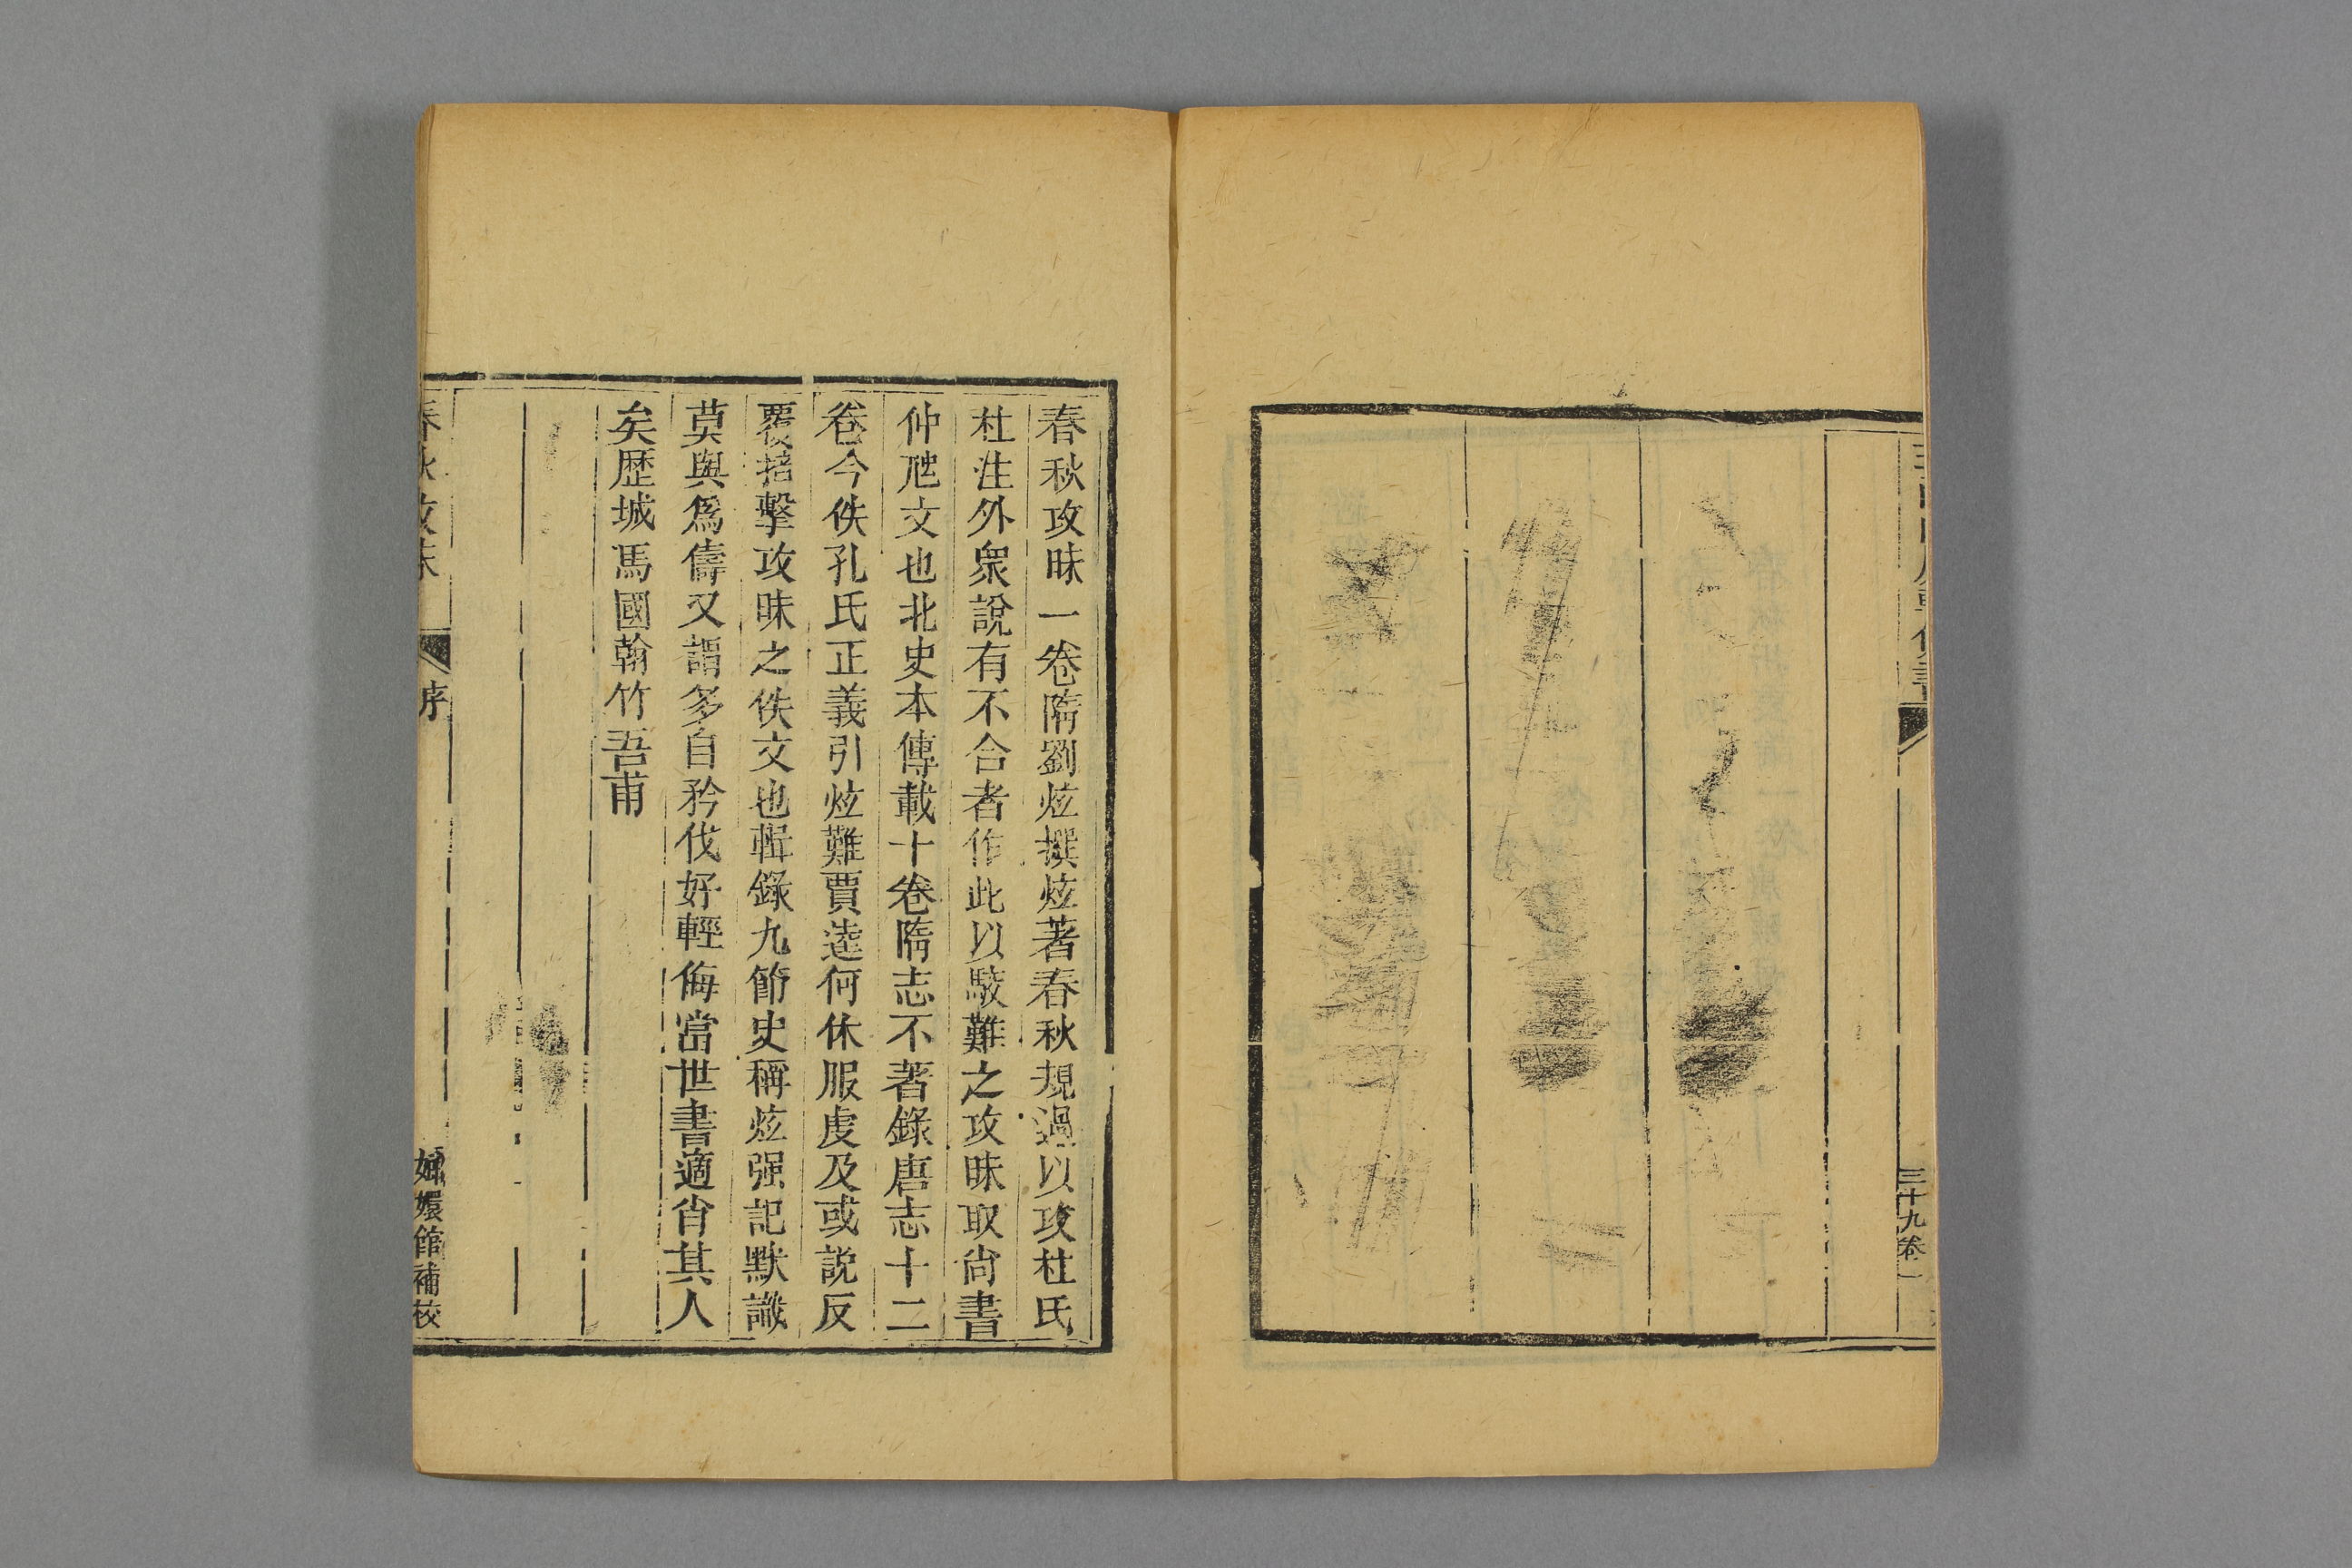 三十九卷一
春秋攻昧一卷隋劉炫撰炫著春秋規過以攻杜氏
杜注外衆說有不合者作此以駁難之攻昧取尙書
仲虺文也北史本傳載十卷隋志不著錄唐志十二
卷今佚孔氏正義引炫難賈逵何休服虔及或說反
覆掊擊攻昧之佚文也輯錄九節史稱炫强記默識
莫與爲儔又謂多自矜伐好輕侮當世書適肖其人
矣歴城馬國翰竹吾甫
春秋攻昧
序
嫏嬛館補校